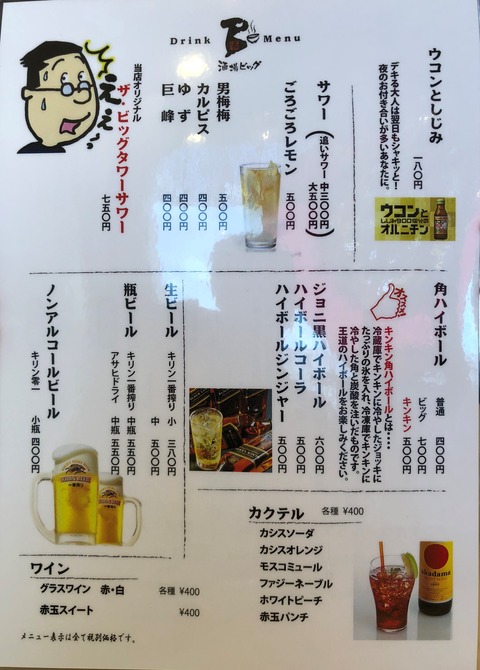 Drink Menu
酒場ビッグ
ウコンとしじみ 一八〇円
デキる大人は翌日もシャキッと!
夜のお付き合いが多いあなたに。
ウコンと
オルニチン
サワー（追いサワー 中三〇〇円 大五〇〇円）
ごろごろレモン 五〇〇円
男梅梅 五〇〇円
カルピス 四〇〇円
ゆず 四〇〇円
巨峰 四〇〇円
当店オリジナル
ザ・ビッグタワーサワー 七五〇円
ええ
角ハイボール
普通 四〇〇円
ビッグ 七〇〇円
キンキン 五〇〇円
キンキン角ハイボールとは……
冷蔵庫でキンキンに冷やしたジョッキに
たっぷりの氷を入れ、冷凍庫でキンキンに
冷やした角と炭酸を注いだものです。
王道のハイボールをお楽しみください。
ジョニ黒ハイボール 六〇〇円
ハイボールコーラ 五〇〇円
ハイボールジンジャー 五〇〇円
生ビール
キリン一番搾り 小 三八〇円
中 五〇〇円
瓶ビール
キリン一番搾り 中瓶 五五〇円
アサヒドライ 中瓶 五五〇円
ノンアルコールビール
キリン零一 小瓶 四〇〇円
カクテル 各種 ¥400
カシスソーダ
カシスオレンジ
モスコミュール
ファジーネーブル
ホワイトピーチ
赤玉パンチ
akadama
ワイン
グラスワイン 赤・白 各種 ¥400
赤玉スイート ¥400
メニュー表示は全て税別価格です。